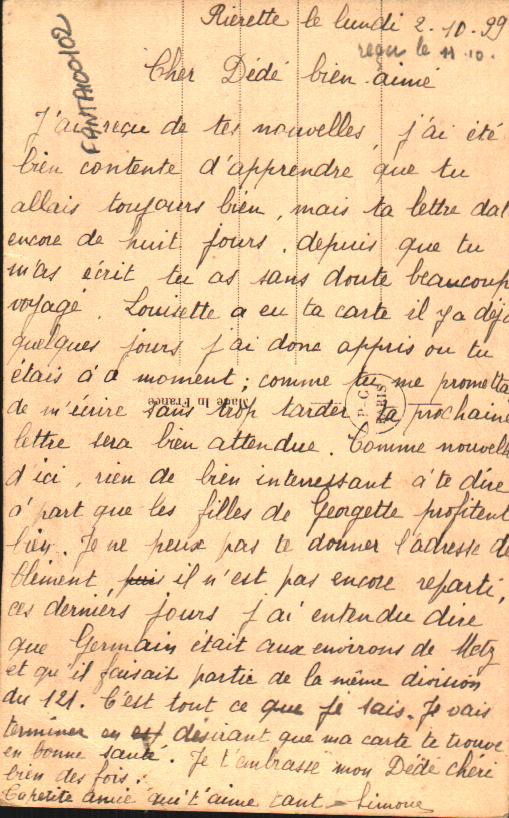 Pierette le lundi 2.10.99
reçu le 11.10.
FANTA100102
Cher Dédé bien aimé
J'ai reçu de tes nouvelles, j'ai été
bien contente d'apprendre que tu
allais toujours bien, mais ta lettre dat
encore de huit jours, depuis que tu
m'as écrit tu as sans doute beaucoup
voyagé. Louisette a eu ta carte il y a déjà
quelques jours j'ai donc appris ou tu
étais à ce moment; comme tu me prometta
de m'écrire sans trop tarder ta prochaine
lettre sera bien attendue. Comme nouvelle
d'ici, rien de bien interressant à te dire
à part que les filles de Georgette profitent
bien. Je ne peux pas te donner l'adresse de
Clément puis il n'est pas encore reparti,
ces derniers jours j'ai entendu dire
que Germain était aux environs de Metz
et qu'il faisait partie de la même division
du 121. C'est tout ce que je sais. Je vais
terminer en désirant que ma carte te trouve
en bonne santé. Je t'embrasse mon Dédé chéri
bien des fois.
Ta petite amie qui t'aime tant - Simone
Made in France
P.C
PARIS